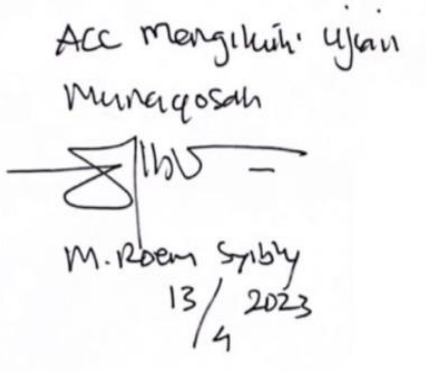 ACC mengikuti ujian
Munaqosah
M. Roem Syibly
13/4 2023